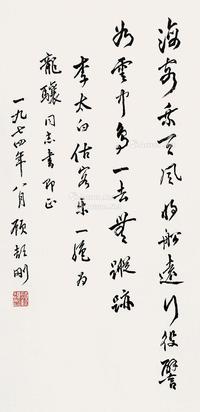 海客乘天风将船远行役譬
如云中鸟一去无踪迹
李太白估客乐一绝为
龙骧同志书即正
一九七四年八月顾韶刚